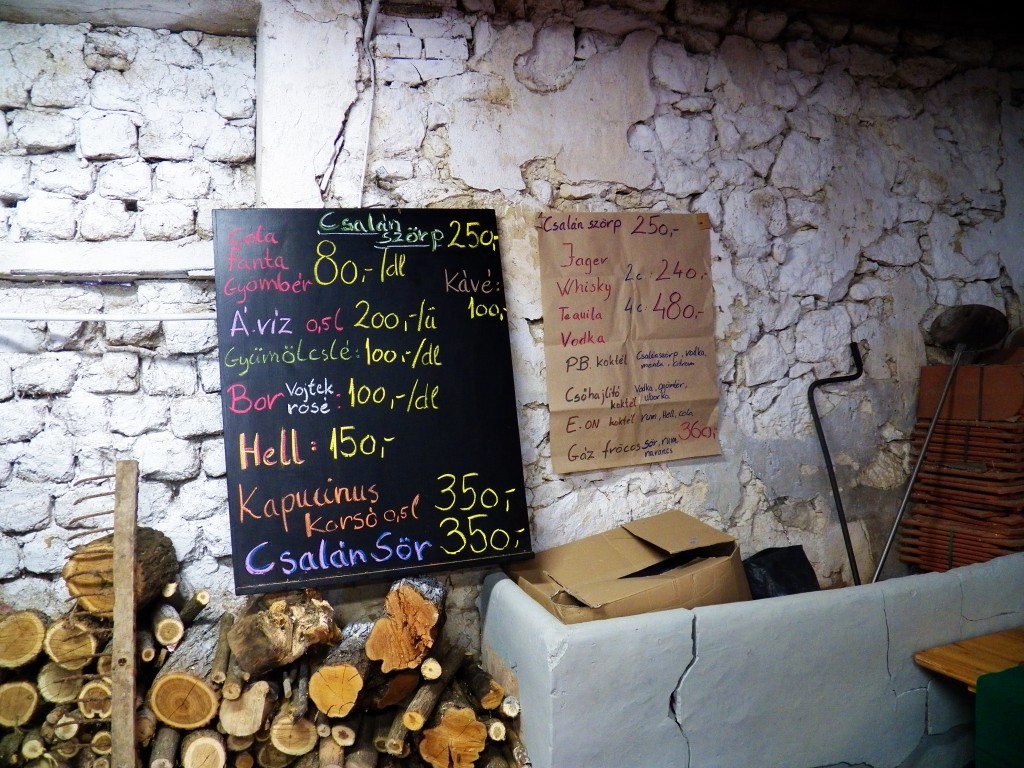 Csalán
szörp 250,-
Cola
Fanta
Gyömbér 80,-/dl
Kávé:
100,-
Á.víz 0,5l 200,-/ü
Gyümölcslé: 100,-/dl
Bor Vojtek rosé: 100,-/dl
Hell: 150,-
Kapucinus 350,-
Korsó 0,5l
Csalán Sör 350,-
Csalán szörp 250,-
Jager
Whisky 2c. 240,-
Tequila 4c. 480,-
Vodka
P.B. koktél Csalánszörp, vodka,
menta, citrom
Csőhajlító Vodka, gyömbér,
koktél uborka
E.ON koktél rum, Hell, cola
360,-
Gáz fröccs sör, rum,
narancs